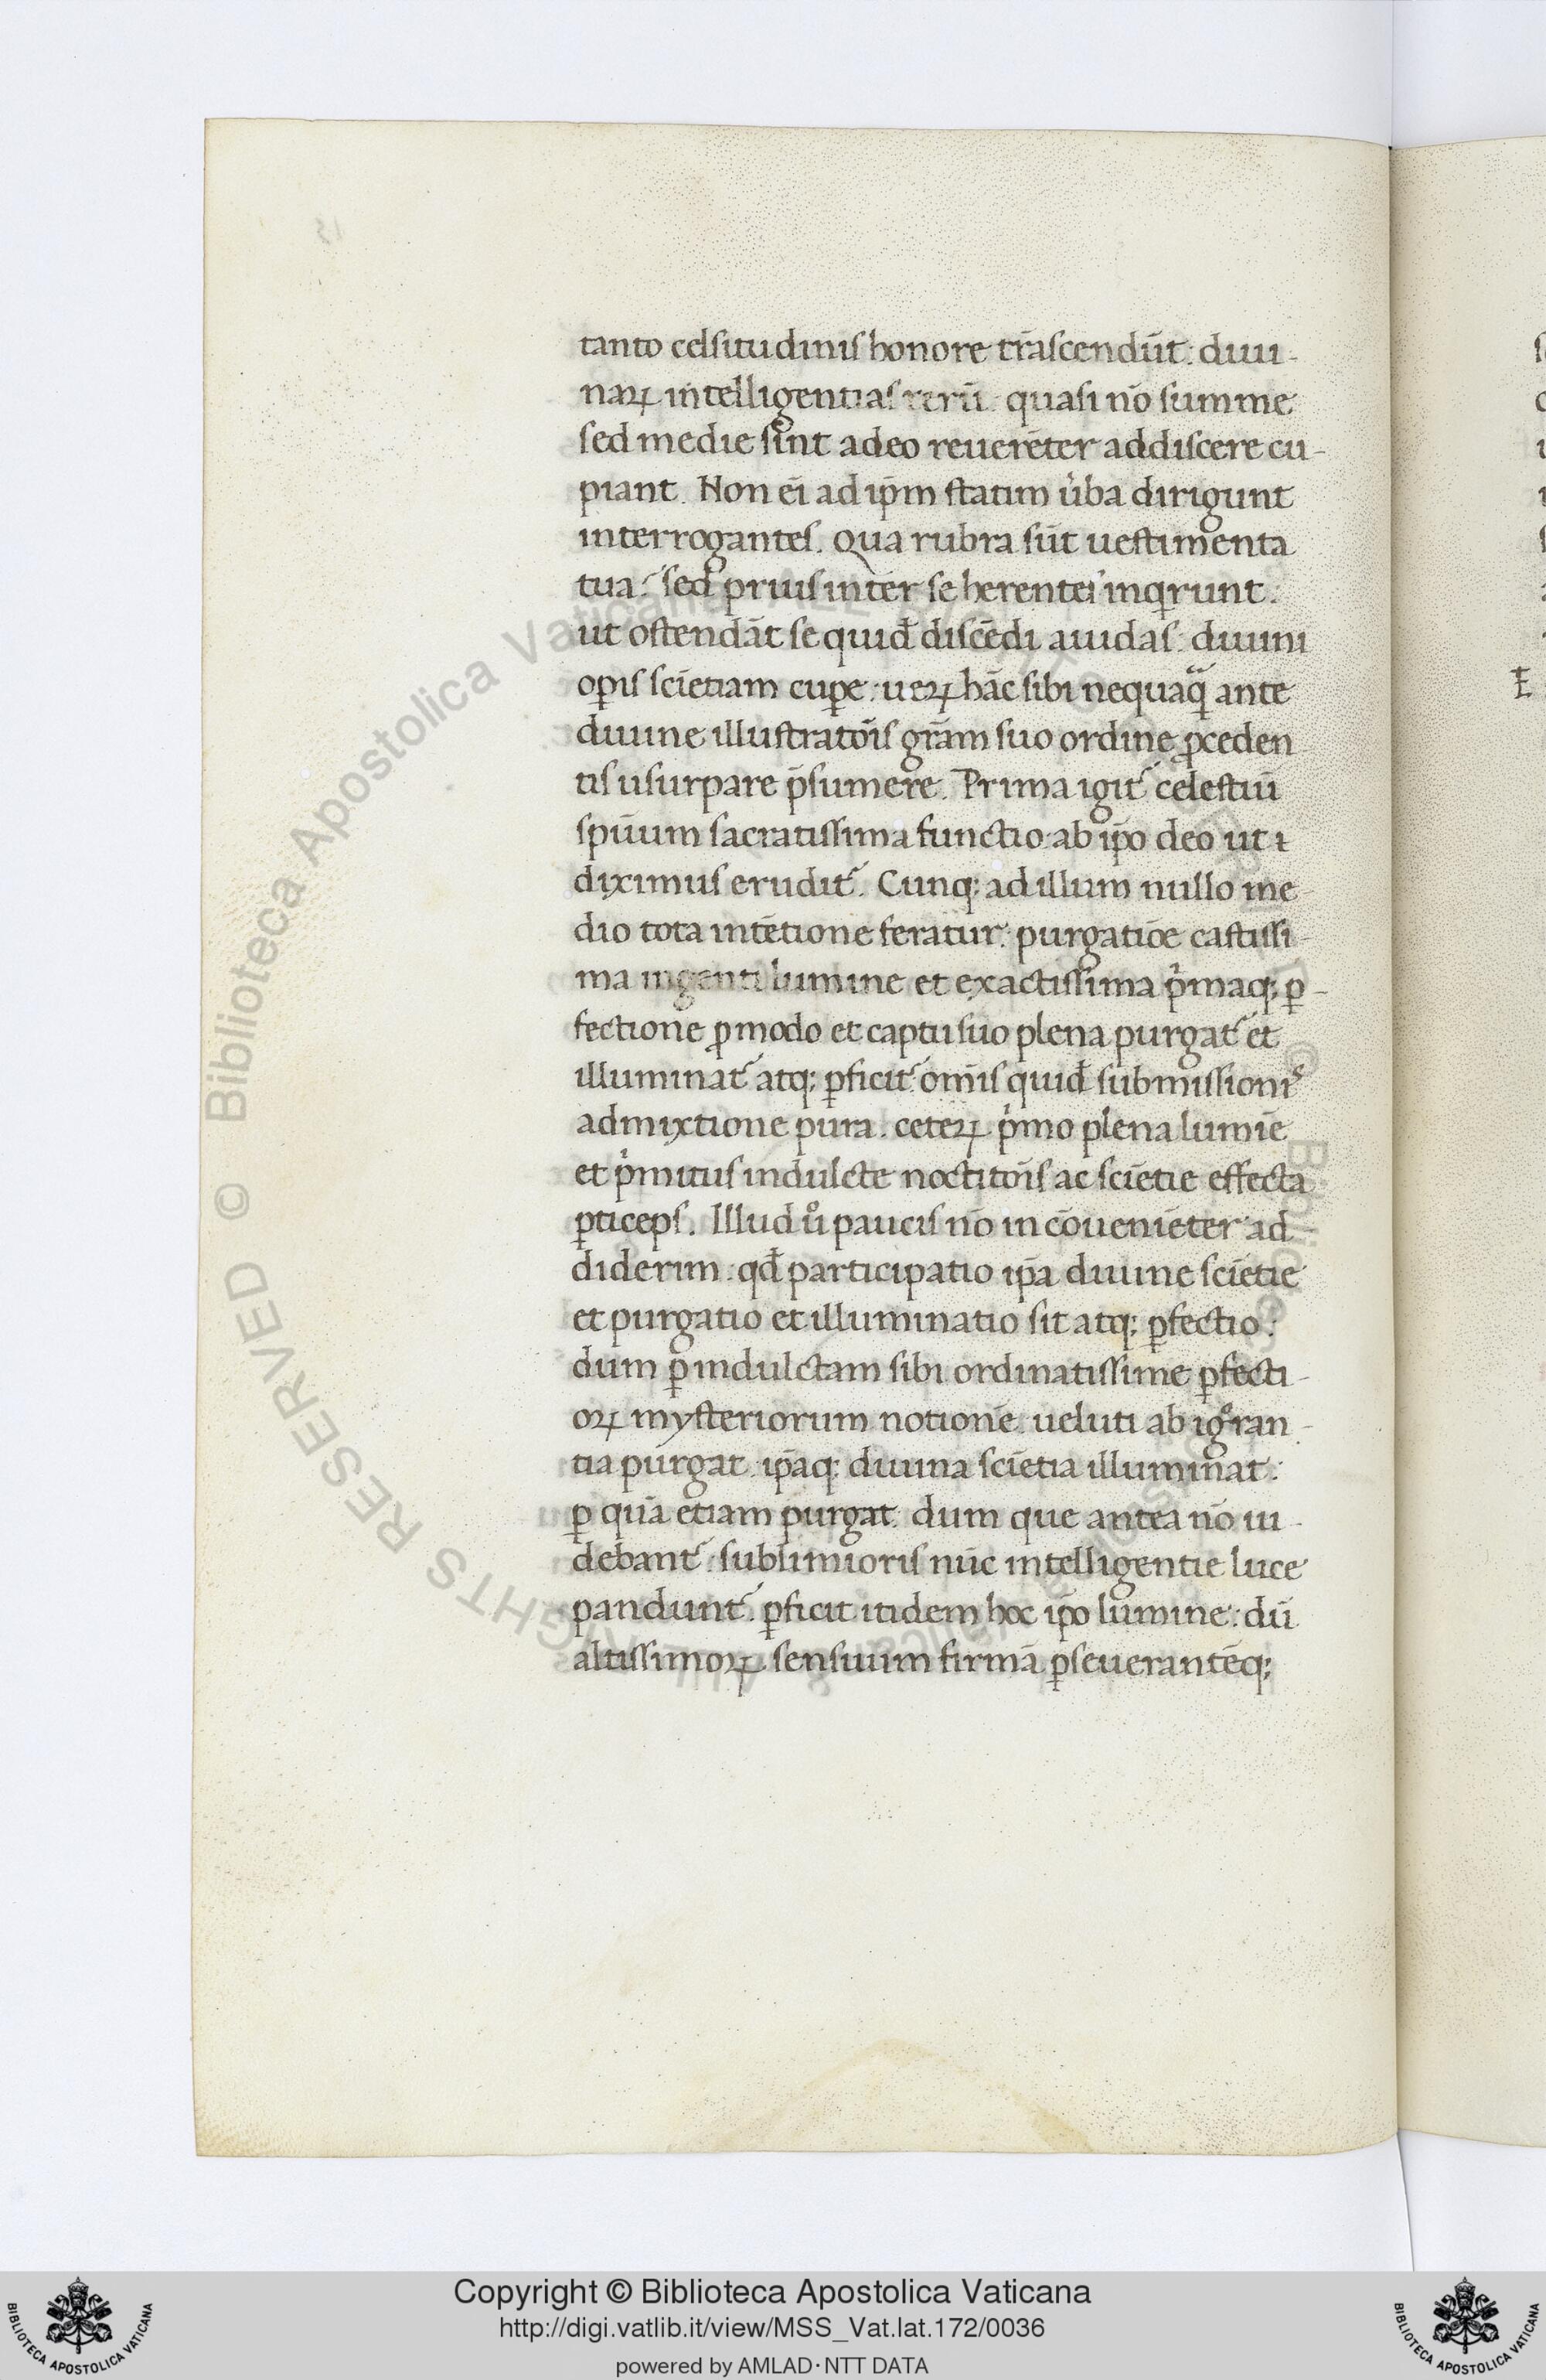 tanto celsitudinis honore trāscendūt: diui-
naꝝ intelligentias rerū: quasi nō summe
sed medie sint adeo reuerēter addiscere cu-
piant. Non ei̅ ad ip̅m statim u̓ba dirigunt
interrogantes. Qua rubra sūt uestimenta
tua? sed prius inter se herentes inqͥrunt:
ut ostendāt se quid̄ discēdi auidas: diuini
oꝑis sciētiam cuꝑe: ueꝝ hāc sibi nequaqᷓ ante
diuine illustratōis gr̅am suo ordine ꝓceden
tis usurpare p̅sumere. Prima igit᷑ celestiū
sp̅uum sacratissima functio ab ip̅o deo ut ⁊
diximus erudit᷑. Cunqꝫ ad illum nullo me-
dio tota intētione feratur: purgatiōe castissi-
ma ingenti lumine et exactissima pͥmaqꝫ ꝑ-
fectione ꝓ modo et captu suo plena purgat᷑ et
illuminat᷑ atqꝫ ꝑficit᷑: om̅is quid̄ submissionis
admixtione pura. ceteꝝ pͥmo plena lumīe
et pͥmitus indulcte noctitōis ac sciētie effecta
ꝑticeps. Illud uͦ paucis nō incōueniēter ad-
diderim: qd̄ participatio ip̅a diuine sciētie
et purgatio et illuminatio sit atqꝫ ꝑfectio:
dum ꝑ indulctam sibi ordinatissime ꝑfecti-
oꝝ mysteriorum notionē: ueluti ab igͦran-
tia purgat: ip̅aqꝫ diuina sciētia illuminat:
ꝑ quā etiam purgat: dum que antea nō ui-
debant᷑: sublimioris nūc intelligentie luce
pandunt᷑: ꝑficit itidem hoc ip̅o lumine: dū
altissimoꝝ sensuum firmā ꝑseuerantēqꝫ
Copyright © Biblioteca Apostolica Vaticana
http://digi.vatlib.it/view/MSS_Vat.lat.172/0036
powered by AMLAD·NTT DATA